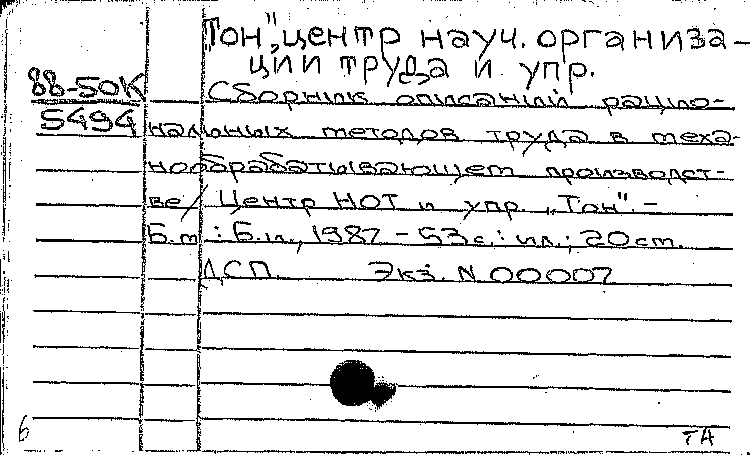 „Тон", центр науч. организа-
ции труда и упр.
88-50К
5494
Сборник описаний рацио-
нальных методов труда в меха-
нообрабатывающем производст-
ве / Центр НОТ и упр. „Тон". -
Б.м: Б.и., 1987 - 53 с.: ил.; 20 см.
ДСП. Экз. N 00007
6
ТА